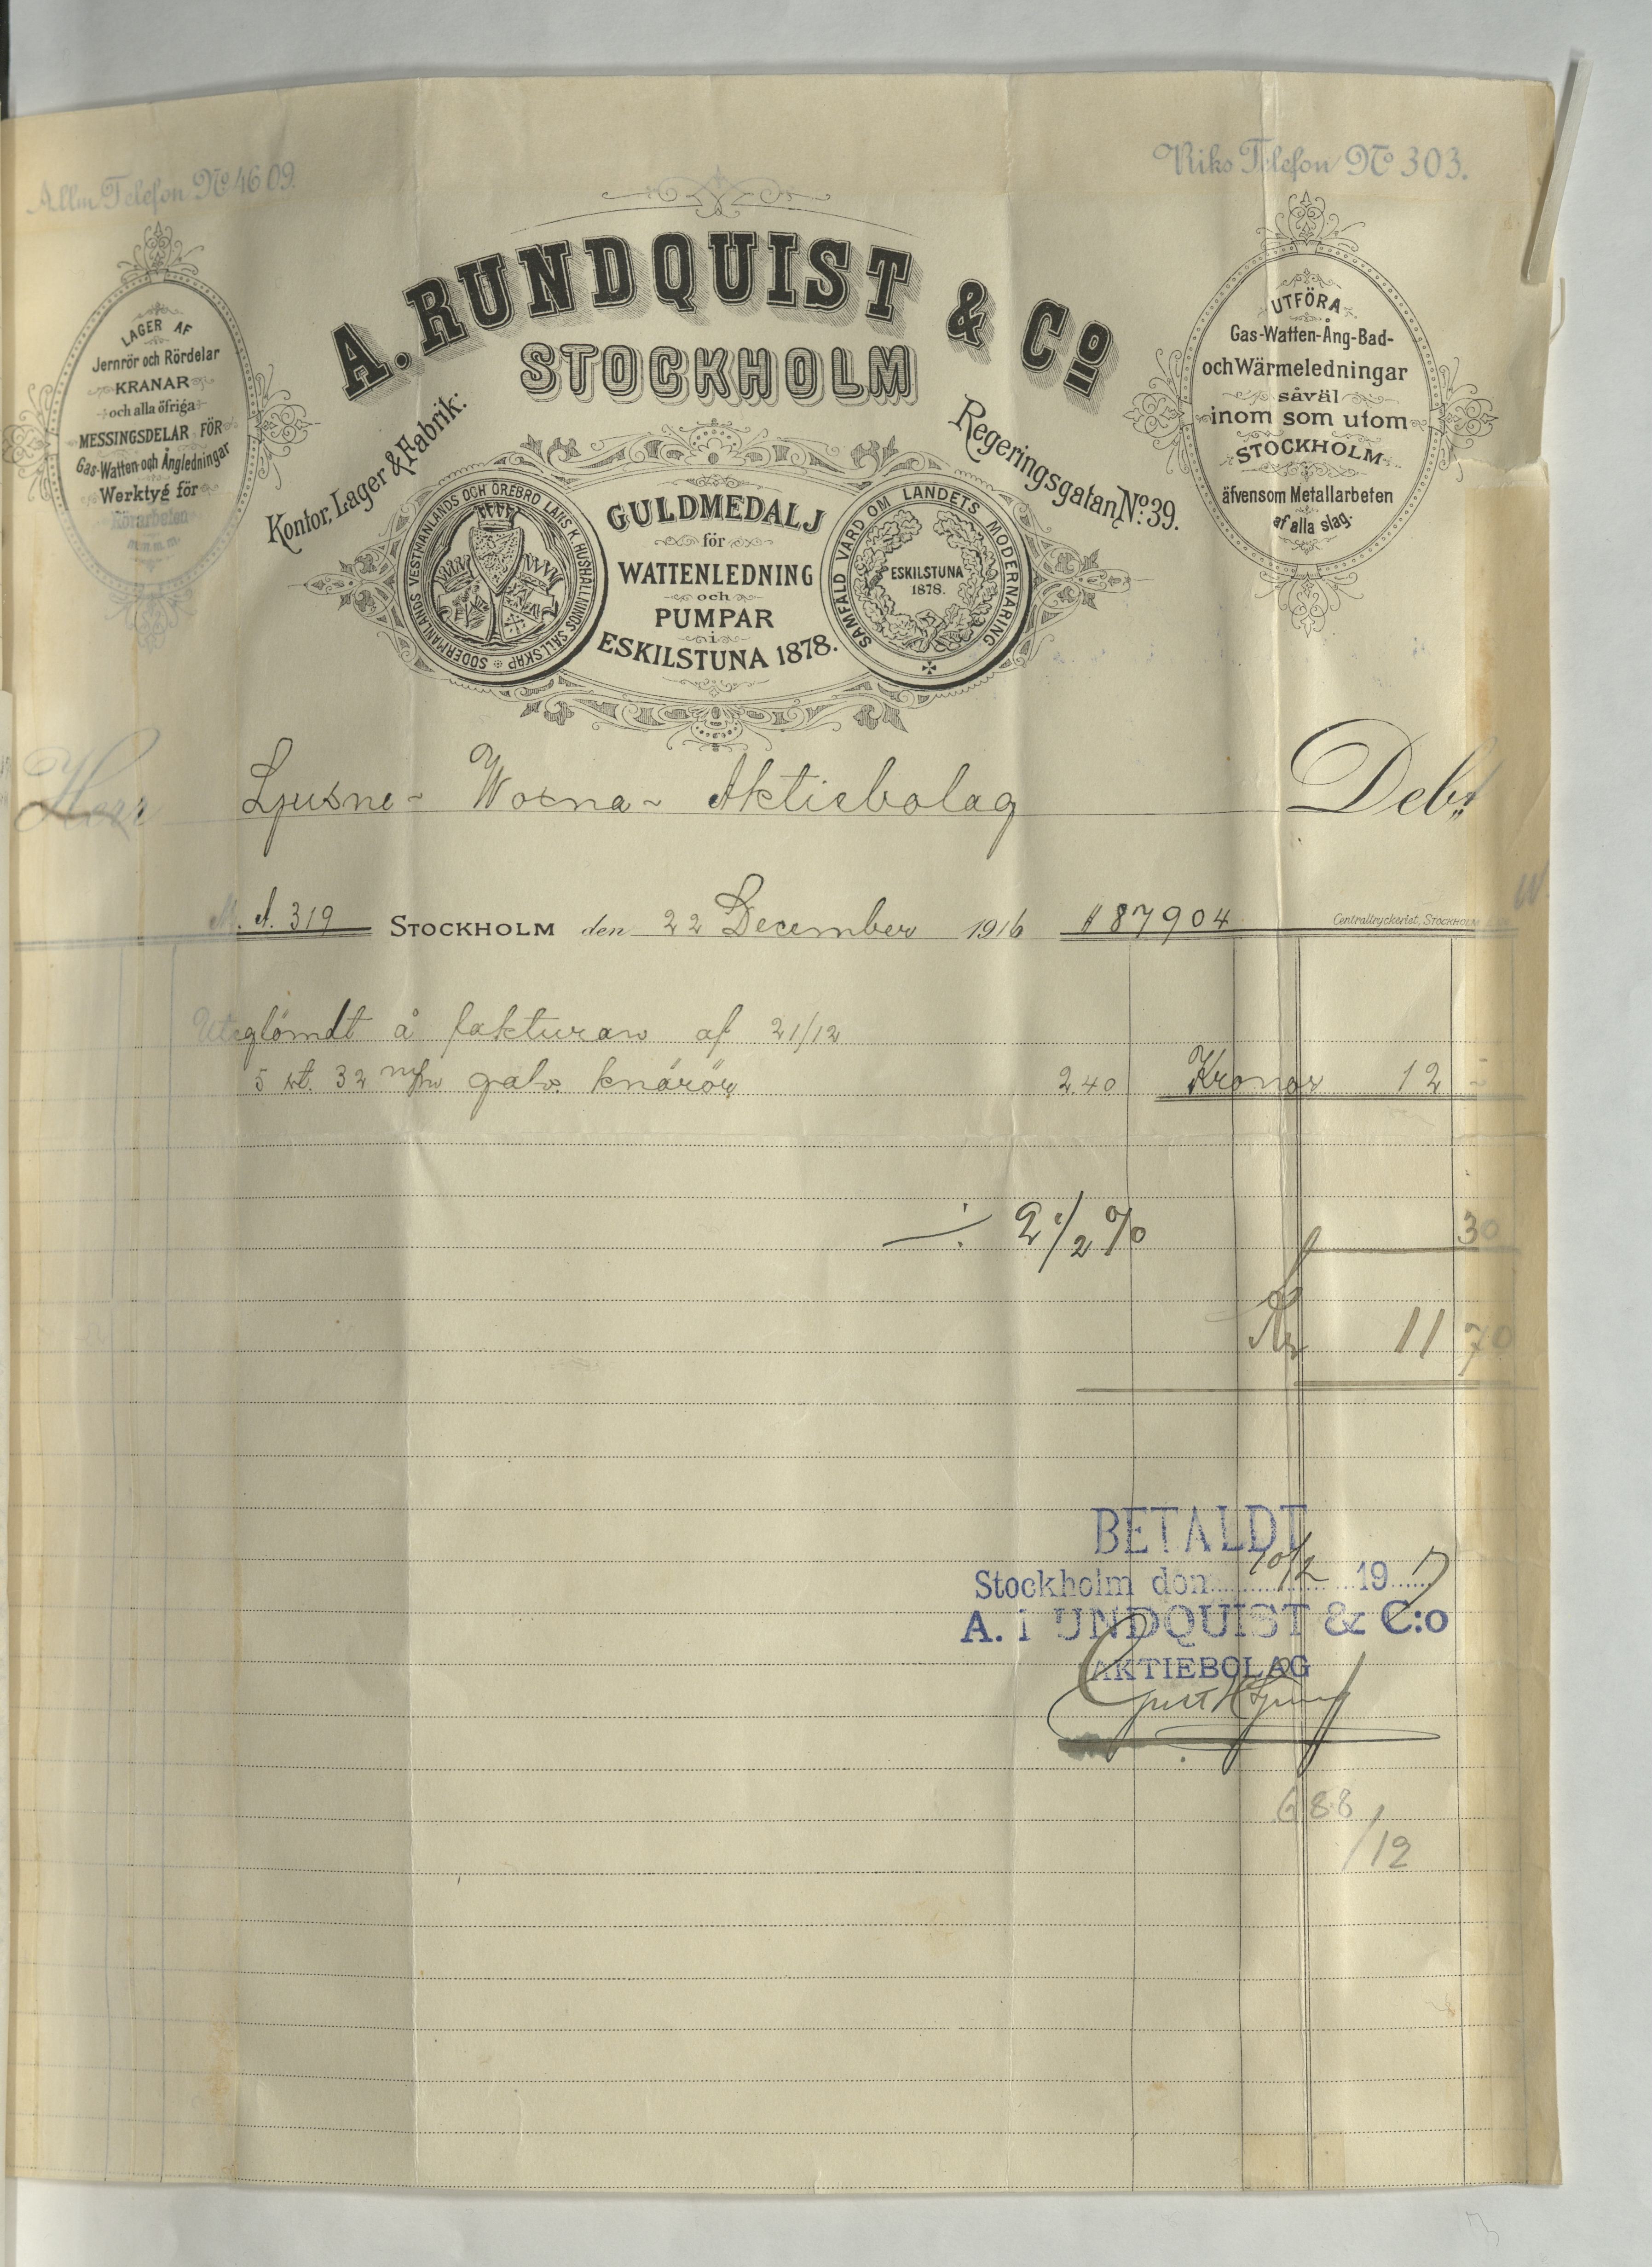 Allm Telefon No 4609.
Riks Telefon No 303.
A. RUNDQUIST & Co
STOCKHOLM
LAGER AF
Jernrör och Rördelar
KRANAR
och alla öfriga
MESSINGSDELAR FÖR
Gas-Watten- och Ångledningar
Werktyg för
Rörarbeten
m.m.m.m.
UTFÖRA
Gas-Watten-Ång-Bad-
och Wärmeledningar
såväl
inom som utom
STOCKHOLM
äfvensom Metallarbeten
af alla slag.
Kontor, Lager & Fabrik:
Regeringsgatan No: 39.
SÖDERMANLANDS VESTMANLANDS OCH ÖREBRO LÄNS K. HUSHÅLLNINGS SÄLLSKAP
GULDMEDALJ
för
WATTENLEDNING
och
PUMPAR
i
ESKILSTUNA 1878.
SAMFÄLD VÅRD OM LANDETS MODERNÄRING
ESKILSTUNA
1878.
Herr Ljusne- Woxna- Aktiebolag Debt
M. A. 319 STOCKHOLM den 22 December 1916 # 87904
Centraltryckeriet, STOCKHOLM
Uteglömdt å fakturan af 21/12
5 st. 32 m/m galv. knärör 2.40 Kronor 12 -
÷ 2 1/2 % 30
Kr 11 70
BETALDT
Stockholm den 10/2 1917
A. RUNDQUIST & C:o
AKTIEBOLAG
688
/12